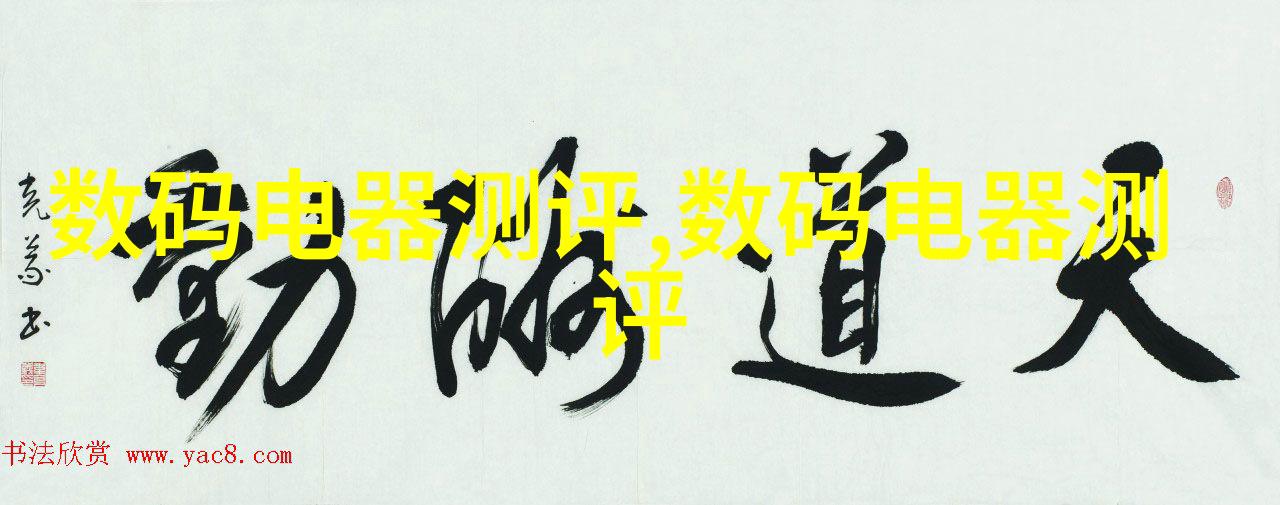 数码电器测评,数码电器测
评
天道酬勤
书法欣赏 www.yac8.com